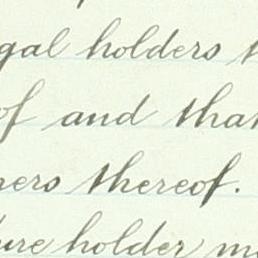 gal holders
of and that
ners thereof.
ure holder